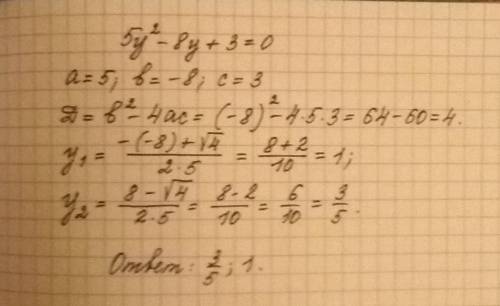 5y² - 8y + 3 = 0
a = 5; b = -8; c = 3
D = b² - 4ac = (-8)² - 4·5·3 = 64 - 60 = 4.
y₁ = (-(-8) + √4)/(2·5) = (8+2)/10 = 1;
y₂ = (8 - √4)/(2·5) = (8-2)/10 = 6/10 = 3/5.
Ответ: 3/5; 1.